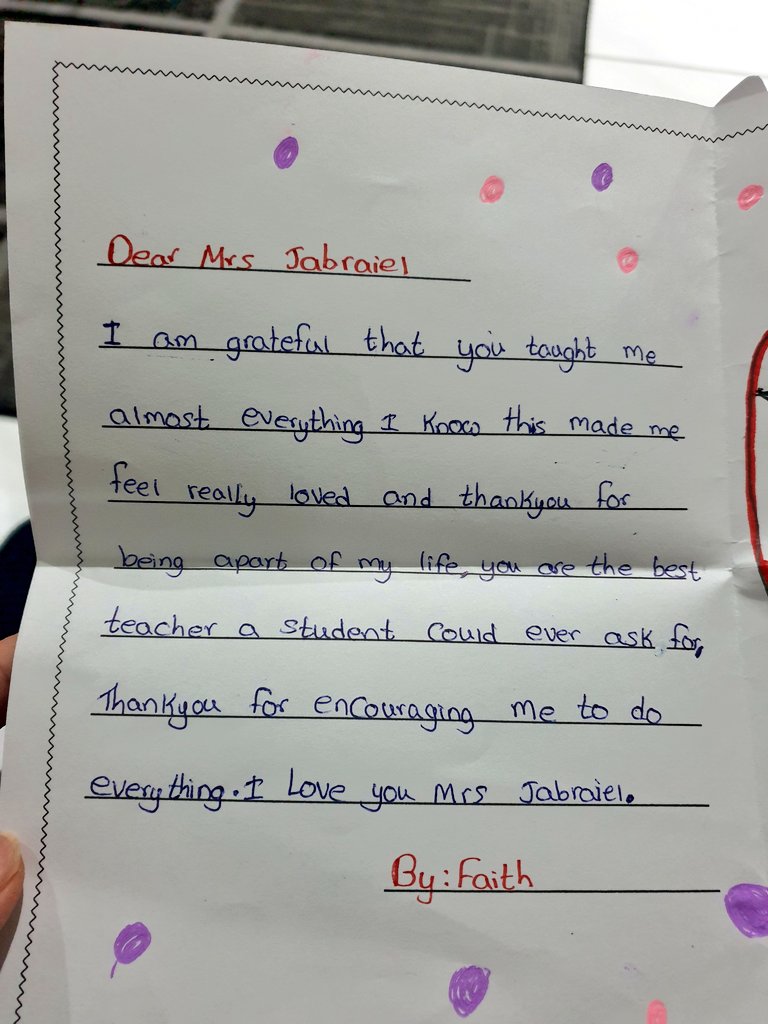 Dear Mrs Jabraiel
I am grateful that you taught me
almost everything I know this made me
feel really loved and thankyou for
being apart of my life, you are the best
teacher a student could ever ask for,
Thankyou for encouraging me to do
everything. I Love you Mrs Jabraiel.
By: Faith